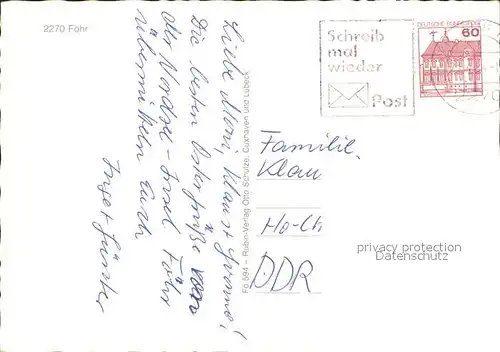 2270 Föhr
Schreib
mal
wieder
Post
DEUTSCHE BUNDESPOST
60
Liebe Moni, Klaus + Yvonne!
Die besten Ostergrüße von
der Nordsee-Insel Föhr
übermitteln Euch
Inge + Günter
Fö 594 – Rubin-Verlag Otto Schulze, Cuxhaven und Lübeck
Familie
Klau
Ho-Ch
DDR
privacy protection
Datenschutz